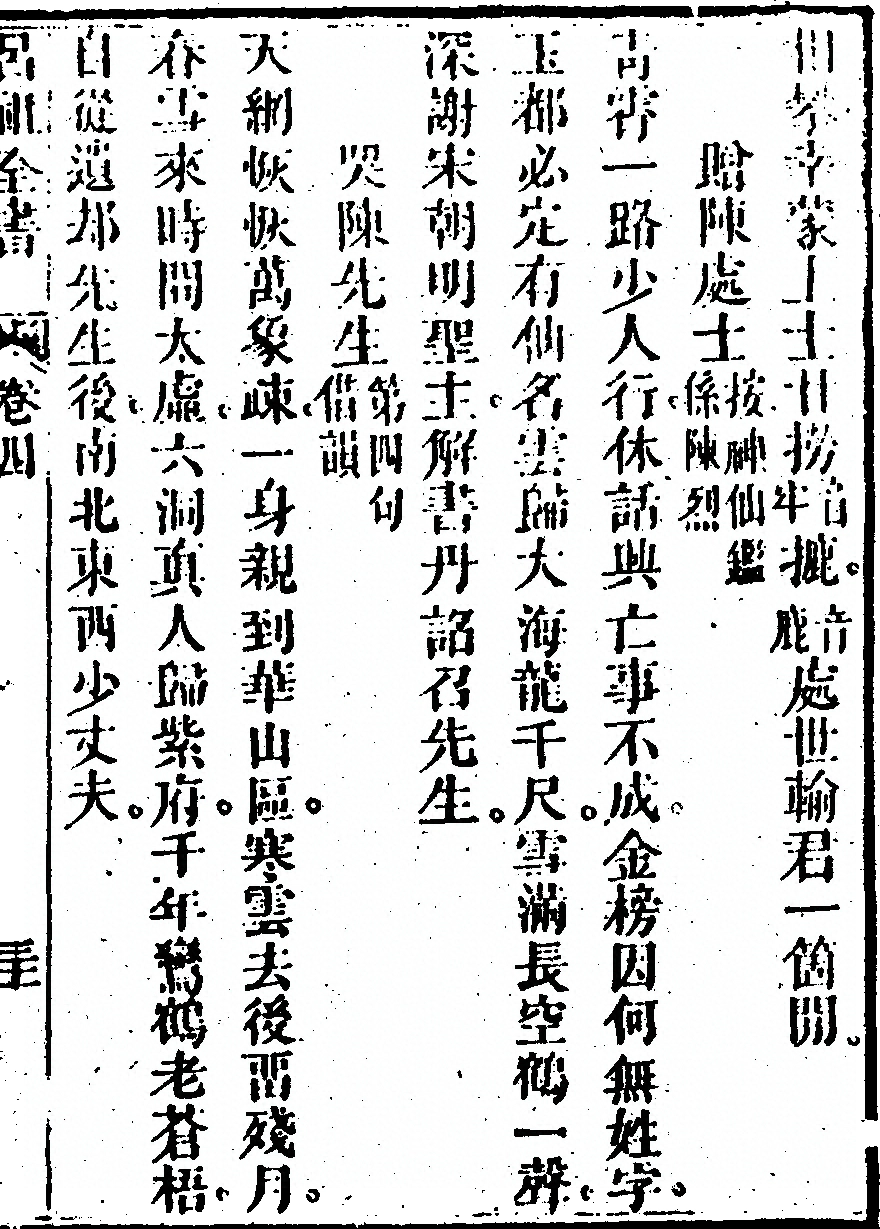 但幸蒙上士甘撈音牢摝音鹿。處世輸君一箇閒。
贈陳處士按神仙鑑係陳烈
青霄一路少人行。休話興亡事不成。金榜因何無姓字。
玉都必定有仙名。雲歸大海龍千尺。雪滿長空鶴一聲。
深謝宋朝明聖主。解書丹詔召先生。
哭陳先生第四句借韻
天網恢恢萬象疎。一身親到華山區。寒雲去後畱殘月。
春雪來時問太虛。六洞眞人歸紫府。千年鸞鶴老蒼梧。
自從遺却先生後。南北東西少丈夫。
呂祖全書 卷四